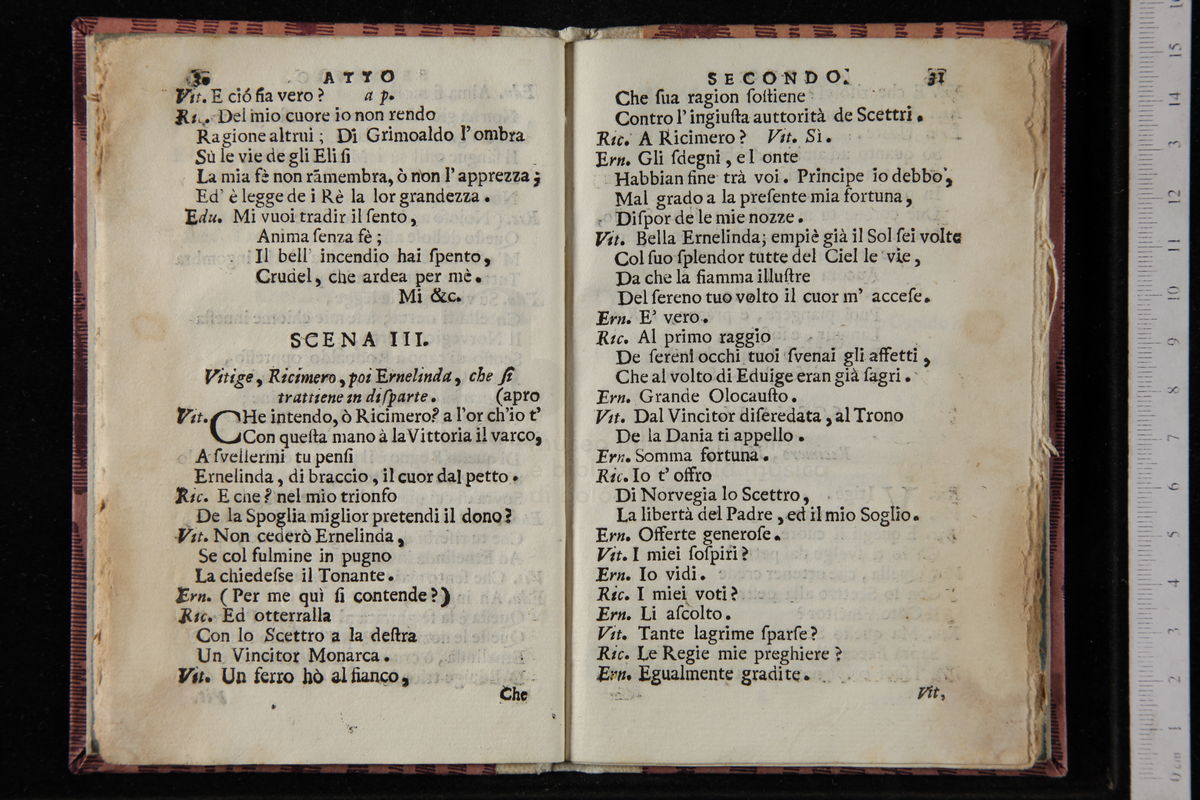 30 ATTO
Vit. E ció ſia vero? a p.
Ric. Del mio cuore io non rendo
Ragione altrui; Di Grimoaldo l'ombra
Sù le vie de gli Eliſi
La mia fè non rāmembra, ò non l'apprezza;
Ed' è legge de i Rè la lor grandezza.
Edu. Mi vuoi tradir il ſento,
Anima ſenza fè;
Il bell' incendio hai ſpento,
Crudel, che ardea per mè.
Mi &c.
SCENA III.
Vitige, Ricimero, poi Ernelinda, che ſi
trattiene in diſparte. (apro
Vit. CHe intendo, ò Ricimero? a l'or ch'io t'
Con queſta mano à la Vittoria il varco,
A ſvellermi tu penſi
Ernelinda, di braccio, il cuor dal petto.
Ric. E che? nel mio trionfo
De la Spoglia miglior pretendi il dono?
Vit. Non cederò Ernelinda,
Se col fulmine in pugno
La chiedeſse il Tonante.
Ern. (Per me quì ſi contende?)
Ric. Ed otterralla
Con lo Scettro a la deſtra
Un Vincitor Monarca.
Vit. Un ferro hò al fianco,
Che
SECONDO. 31
Che ſua ragion ſoſtiene
Contro l'ingiuſta auttorità de Scettri.
Ric. A Ricimero? Vit. Sì.
Ern. Gli ſdegni, e l onte
Habbian fine trà voi. Principe io debbo,
Mal grado a la preſente mia fortuna,
Diſpor de le mie nozze.
Vit. Bella Ernelinda; empiè già il Sol ſei volte
Col ſuo ſplendor tutte del Ciel le vie,
Da che la fiamma illuſtre
Del ſereno tuo volto il cuor m' acceſe.
Ern. E' vero.
Ric. Al primo raggio
De ſereni occhi tuoi ſvenai gli affetti,
Che al volto di Eduige eran già ſagri.
Ern. Grande Olocauſto.
Vit. Dal Vincitor diſeredata, al Trono
De la Dania ti appello.
Ern. Somma fortuna.
Ric. Io t' offro
Di Norvegia lo Scettro,
La libertà del Padre, ed il mio Soglio.
Ern. Offerte generoſe.
Vit. I miei ſoſpiri?
Ern. Io vidi.
Ric. I miei voti?
Ern. Li aſcolto.
Vit. Tante lagrime ſparſe?
Ric. Le Regie mie preghiere?
Ern. Egualmente gradite.
Vit,